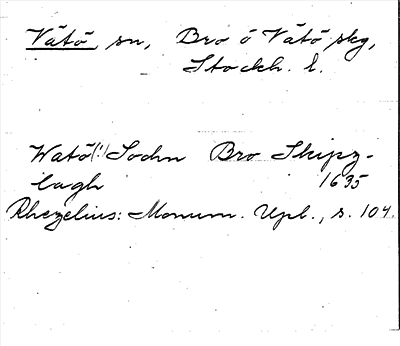 Vätö sn, Bro o Vätö skg,
Stockh. l.
Watö(!) Sochn Bro Skipz-
lagh 1635
Rhezelius: Monum. Upl., s. 104.